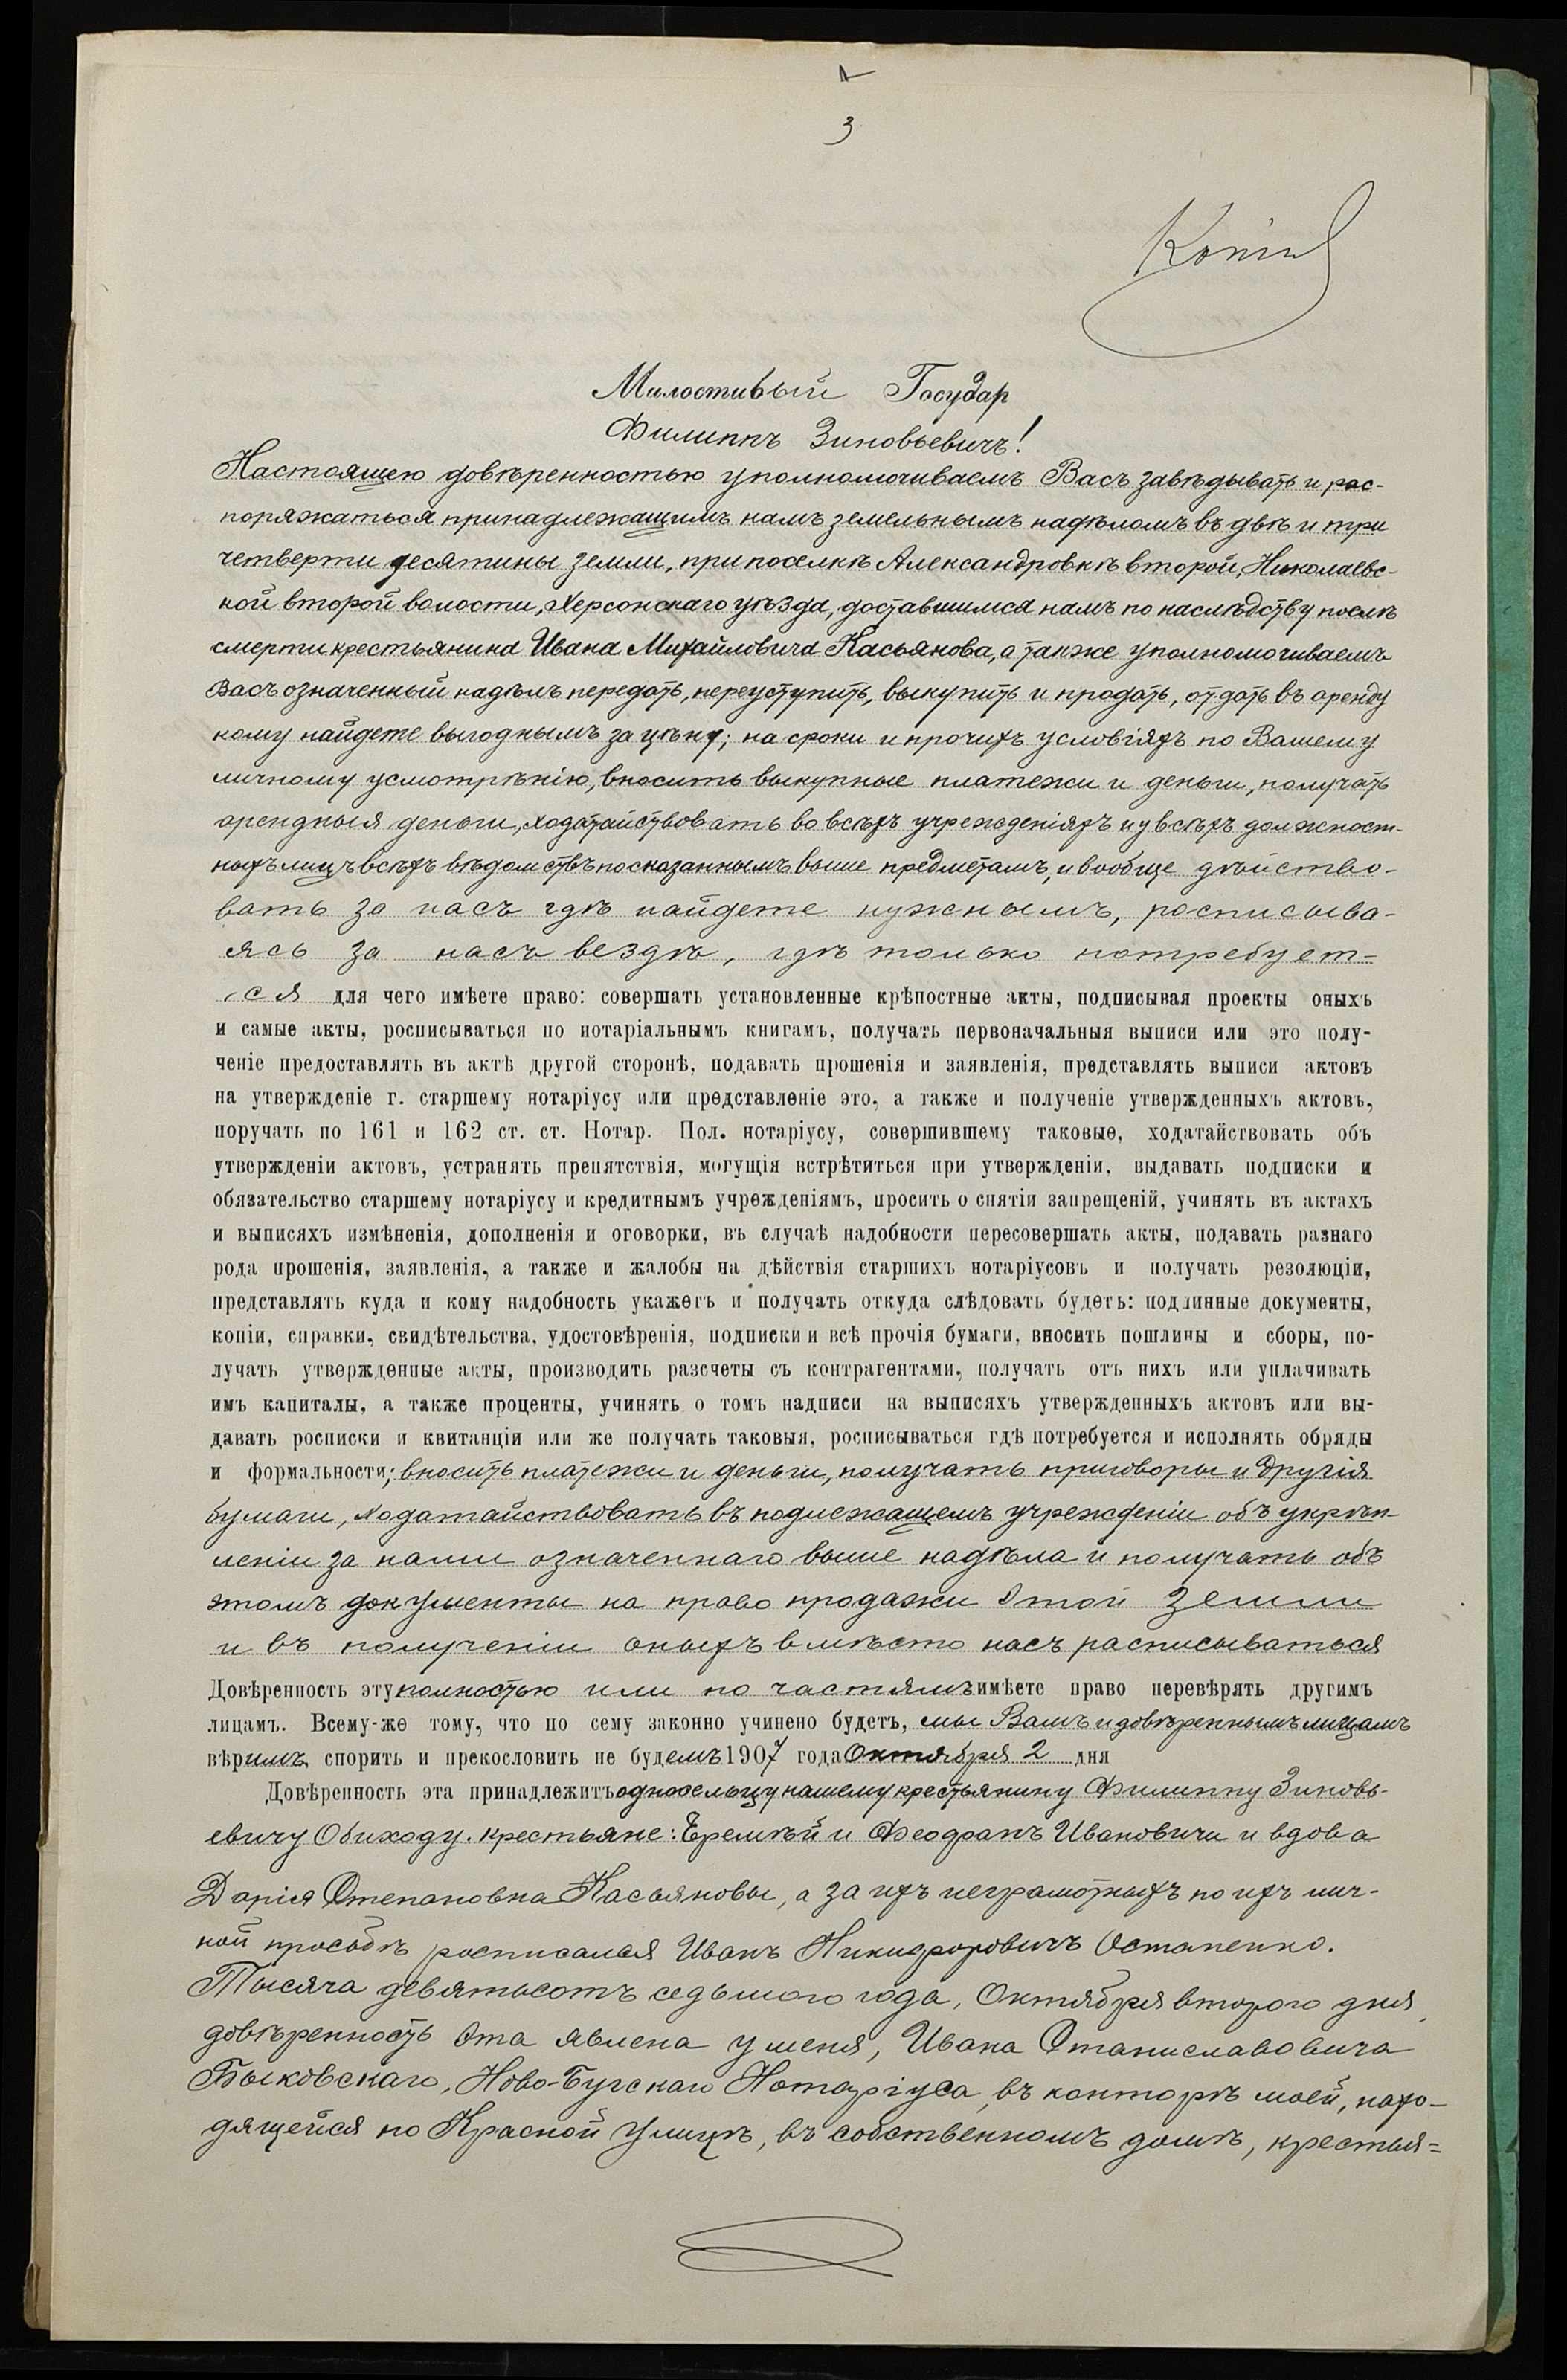 3
Копія
Милостивый Государ
Филиппъ Зиновьевичъ!
Настоящею довѣренностью уполномочиваемъ Васъ завѣдывать и рас-
поряжаться принадлежащимъ намъ земельнымъ надѣломъ въ двѣ и три
четверти десятины земли, при поселкѣ Александровкѣ второй, Николаевс-
кой второй волости, Херсонскаго уѣзда, доставшимся намъ по наслѣдству послѣ
смерти крестьянина Ивана Михайловича Касьянова, а также уполномочиваемъ
Васъ означенный надѣлъ передать, переуступить, выкупить и продать, отдать въ аренду
кому найдете выгоднымъ за цѣну; на сроки и прочихъ условіяхъ по Вашему
личному усмотрѣнію, вносить выкупные платежи и деньги, получать
арендныя деньги, ходатайствовать во всѣхъ учрежденіяхъ и у всѣхъ должност-
ныхъ лицъ всѣхъ вѣдомствъ по сказаннымъ выше предметамъ, и вообще дѣйство-
вать за насъ гдѣ найдете нужнымъ, росписыва-
ясь за насъ вездѣ, гдѣ только потребует-
ся для чего имѣете право: совершать установленные крѣпостные акты, подписывая проекты оныхъ
и самые акты, росписываться по нотаріальнымъ книгамъ, получать первоначальныя выписи или это полу-
ченіе предоставлять въ актѣ другой сторонѣ, подавать прошенія и заявленія, представлять выписи актовъ
на утвержденіе г. старшему нотаріусу или представленіе это, а также и полученіе утвержденныхъ актовъ,
поручать по 161 и 162 ст. ст. Нотар. Пол. нотаріусу, совершившему таковые, ходатайствовать объ
утвержденіи актовъ, устранять препятствія, могущія встрѣтиться при утвержденіи, выдавать подписки и
обязательство старшему нотаріусу и кредитнымъ учрежденіямъ, просить о снятіи запрещеній, учинять въ актахъ
и выписяхъ измѣненія, дополненія и оговорки, въ случаѣ надобности пересовершать акты, подавать разнаго
рода прошенія, заявленія, а также и жалобы на дѣйствія старшихъ нотаріусовъ и получать резолюціи,
представлять куда и кому надобность укажетъ и получать откуда слѣдовать будетъ: подлинные документы,
копіи, справки, свидѣтельства, удостовѣренія, подписки и всѣ прочія бумаги, вносить пошлины и сборы, по-
лучать утвержденные акты, производить разсчеты съ контрагентами, получать отъ нихъ или уплачивать
имъ капиталы, а также проценты, учинять о томъ надписи на выписяхъ утвержденныхъ актовъ или вы-
давать росписки и квитанціи или же получать таковыя, росписываться гдѣ потребуется и исполнять обряды
и формальности; вносить платежи и деньги, получать приговоры и другія
бумаги, ходатайствовать въ подлежащемъ учрежденіи объ укрѣп-
леніи за нами означеннаго выше надѣла и получать объ
этомъ документы на право продажи этой земли
и въ полученіи оныхъ вмѣсто насъ расписываться
Довѣренность эту полностью или по частямъ имѣете право перевѣрять другимъ
лицамъ. Всему-же тому, что по сему законно учинено будетъ, мы Вамъ и довѣреннымъ лицамъ
вѣримъ, спорить и прекословить не будемъ 1907 года Октября 2 дня
Довѣренность эта принадлежитъ односельцу нашему крестьянину Филиппу Зиновь-
евичу Обиходу. крестьяне: Еремѣй и Феофанъ Ивановичи и вдова
Дарія Степановна Касьяновы, а за ихъ неграмотныхъ по ихъ лич-
ной просьбѣ росписался Иванъ Никифоровичъ Остапенко.
Тысяча девятьсотъ седьмого года, Октября второго дня,
довѣренность эта явлена у меня, Ивана Станиславовича
Быковскаго, Ново-Бугскаго Нотаріуса, въ конторѣ моей, нахо-
дящейся по Красной улицѣ, въ собственномъ домѣ, крестья=